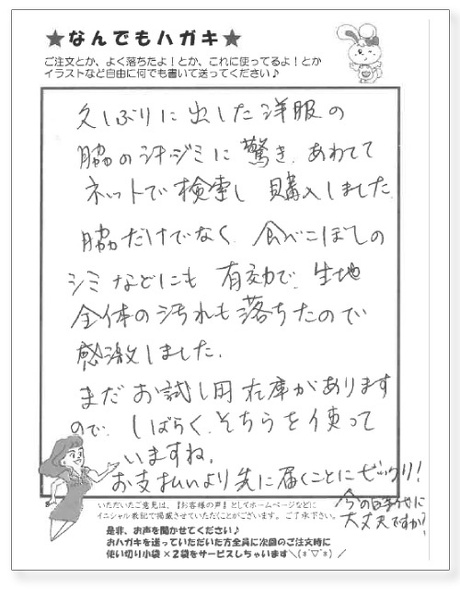 ★なんでもハガキ★
ご注文とか、よく落ちたよ!とか、これに使ってるよ!とか
イラストなど自由に何でも書いて送ってください♪
久しぶりに出した洋服の
脇の汗ジミに驚き、あわてて
ネットで検索し 購入しました
脇だけでなく、食べこぼしの
シミなどにも 有効で、生地
全体の汚れも落ちたので
感激しました。
まだお試し用在庫があります
ので、しばらくそちらを使って
いますね。
お支払いより先に届くことにビックリ!
今の時代に
大丈夫ですか?
いただいたご意見は、『お客様の声』としてホームページなどに
イニシャル表記で掲載させていただくことがございます。ご了承下さい。
是非、お声を聞かせてください♪
おハガキを送っていただいた方全員に次回のご注文時に
使い切り小袋×2袋をサービスしちゃいます＼(*ˇ▽ˇ*)／